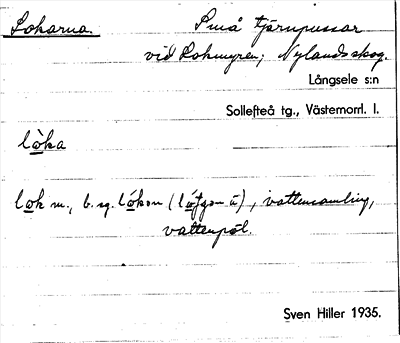 Lokarna. Små tjärnpussar
vid Lokmyren, Nylandsskog.
Långsele s:n
Sollefteå tg., Västernorrl. l.
lòka
lok m., b. sg. lókan (), vattensamling,
vattenpöl.
Sven Hiller 1935.